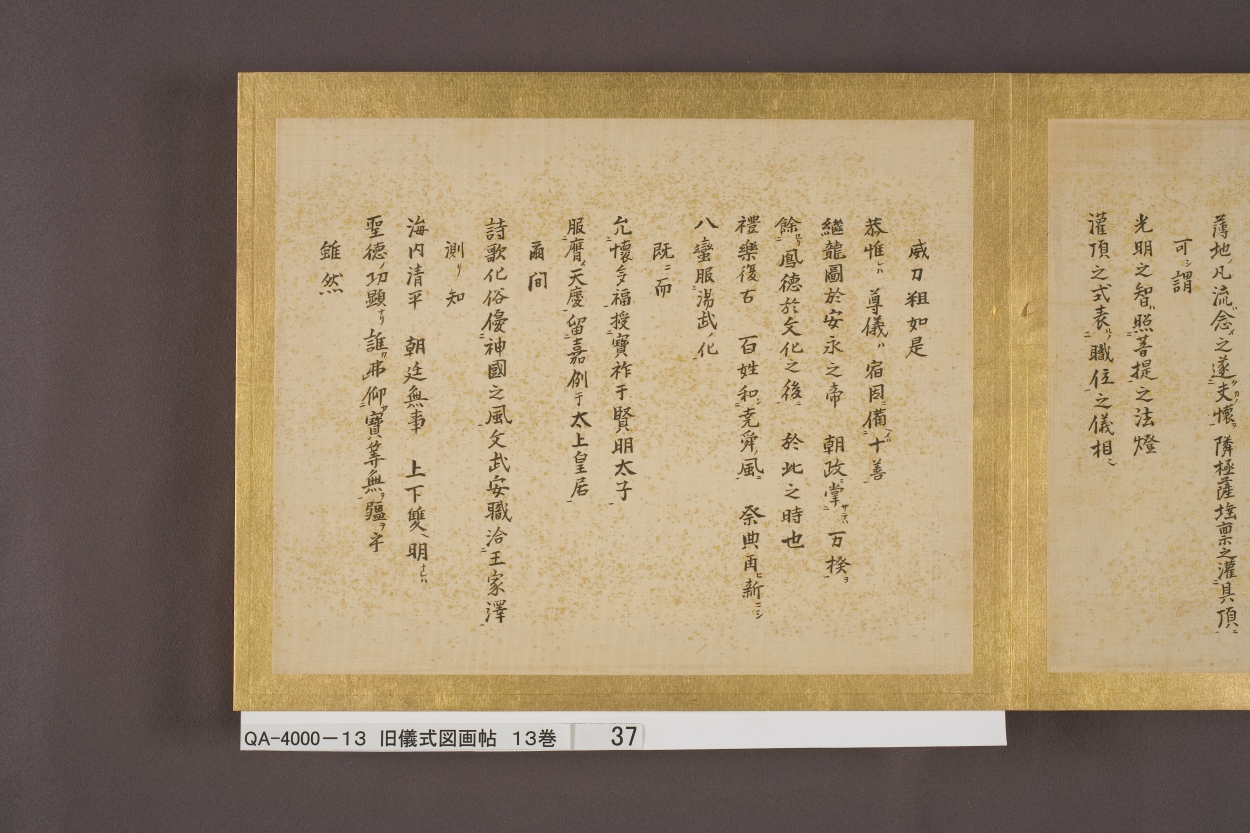 薄地ノ凡流念之遂夫懐ヲ隣極薩埵禀之灌具頂ニ
可シ謂
光明之智照菩提之法燈
灌頂之式表ハ職位之儀相ニ
威力粗如是
恭惟レハ 尊儀ハ宿因ニ備十善
繼龍圖於安永之帝 朝政ニ掌サテハ万揆ヲ
餘リ鳳德於文化之後ニ 於此之時也
禮樂復古 百姓和シ堯舜ノ風ニ 祭典再ヒ新ニシ
八蠻服湯武ノ化
既ニ而
允懐多福授寶祚于賢明太子
服膺メ天慶留嘉例于太上皇居
爾間
詩歌化俗優神國之風文武安職洽王家澤
測リ知
海内清平 朝廷無事 上下雙ヘ明ナレハ
聖德ノ功顯ナリ誰カ弗仰寶筭無彊ヲ乎
雖然
QA-4000-13 旧儀式図画帖 13巻 37